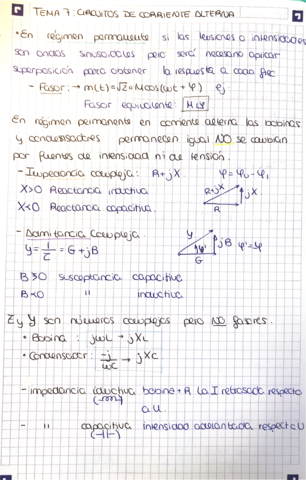 TEMA 7: CIRCUITOS DE CORRIENTE ALTERNA
• En régimen permanente si las tensiones o intensidades
son ondas sinusoidales pero será necesario aplicar
superposición para obtener la respuesta a cada frec
- Fasor: → m(t) = √2 = M cos(ωt + φ) ej
Fasor equivalente: M∠φ
En régimen permanente en corriente alterna las bobinas
y condensadores permanecen igual NO se cambian
por fuentes de intensidad ni de tensión.
- Impedancia compleja: R + jX φ = φu - φi
X>0 Reactancia inductiva R+jX jX
X<0 Reactancia capacitiva. R
- Admitancia compleja. Y
y = 1/Z = G + jB φ' jB φ'=φ
G
B>0 susceptancia capacitiva
B<0 " inductiva
Z y Y son números complejos pero NO fasores.
• Bobina: jωL → jXL
• Condensador: -j/ωC → jXC
- impedancia inductiva bobina + R la I retrasada respecto
a U.
- " capacitiva intensidad adelantada respecto U
(-||-)